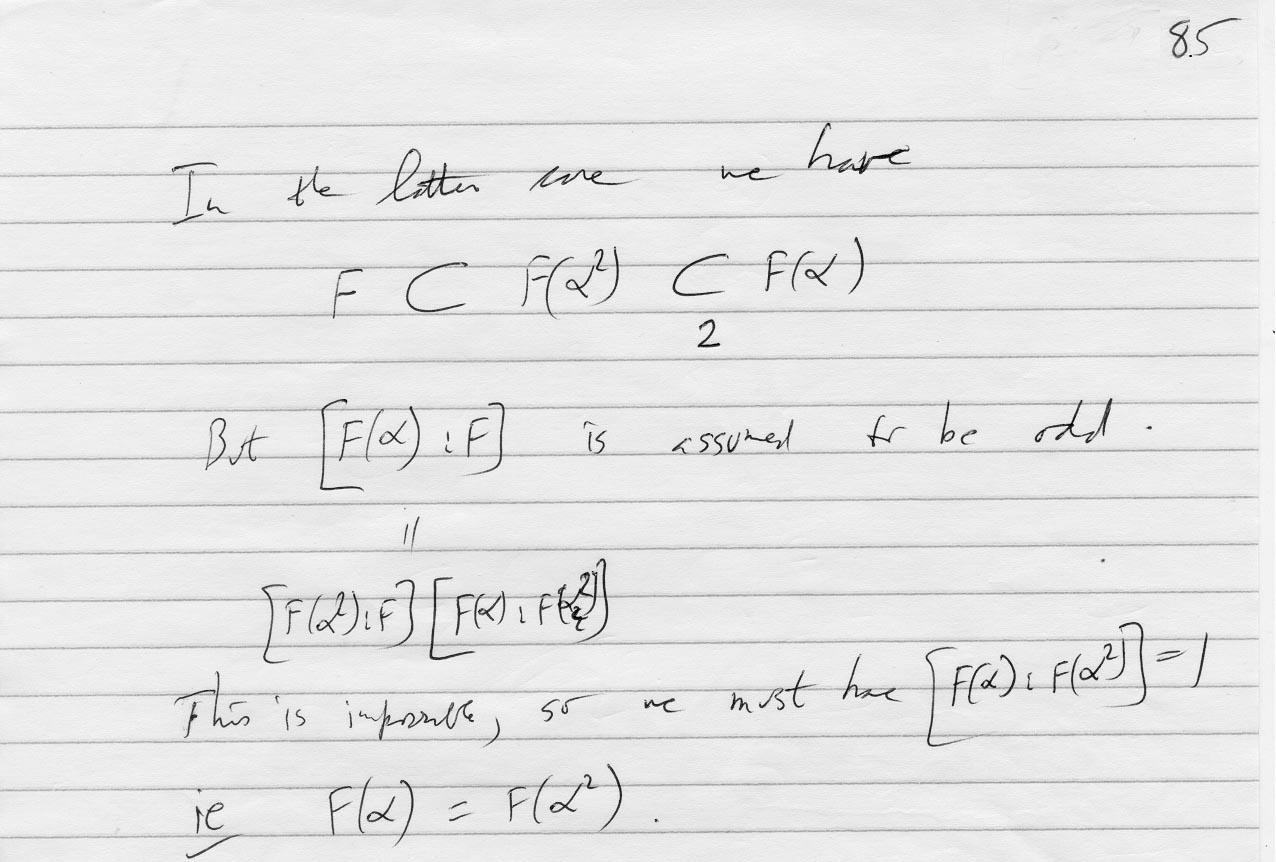 85
In the latter case we have
F ⊂ F(α²) ⊂ F(α)
2
But [F(α) : F] is assumed to be odd.
||
[F(α²) : F] [F(α) : F(α²)]
This is impossible, so we must have [F(α) : F(α²)] = 1
ie F(α) = F(α²).